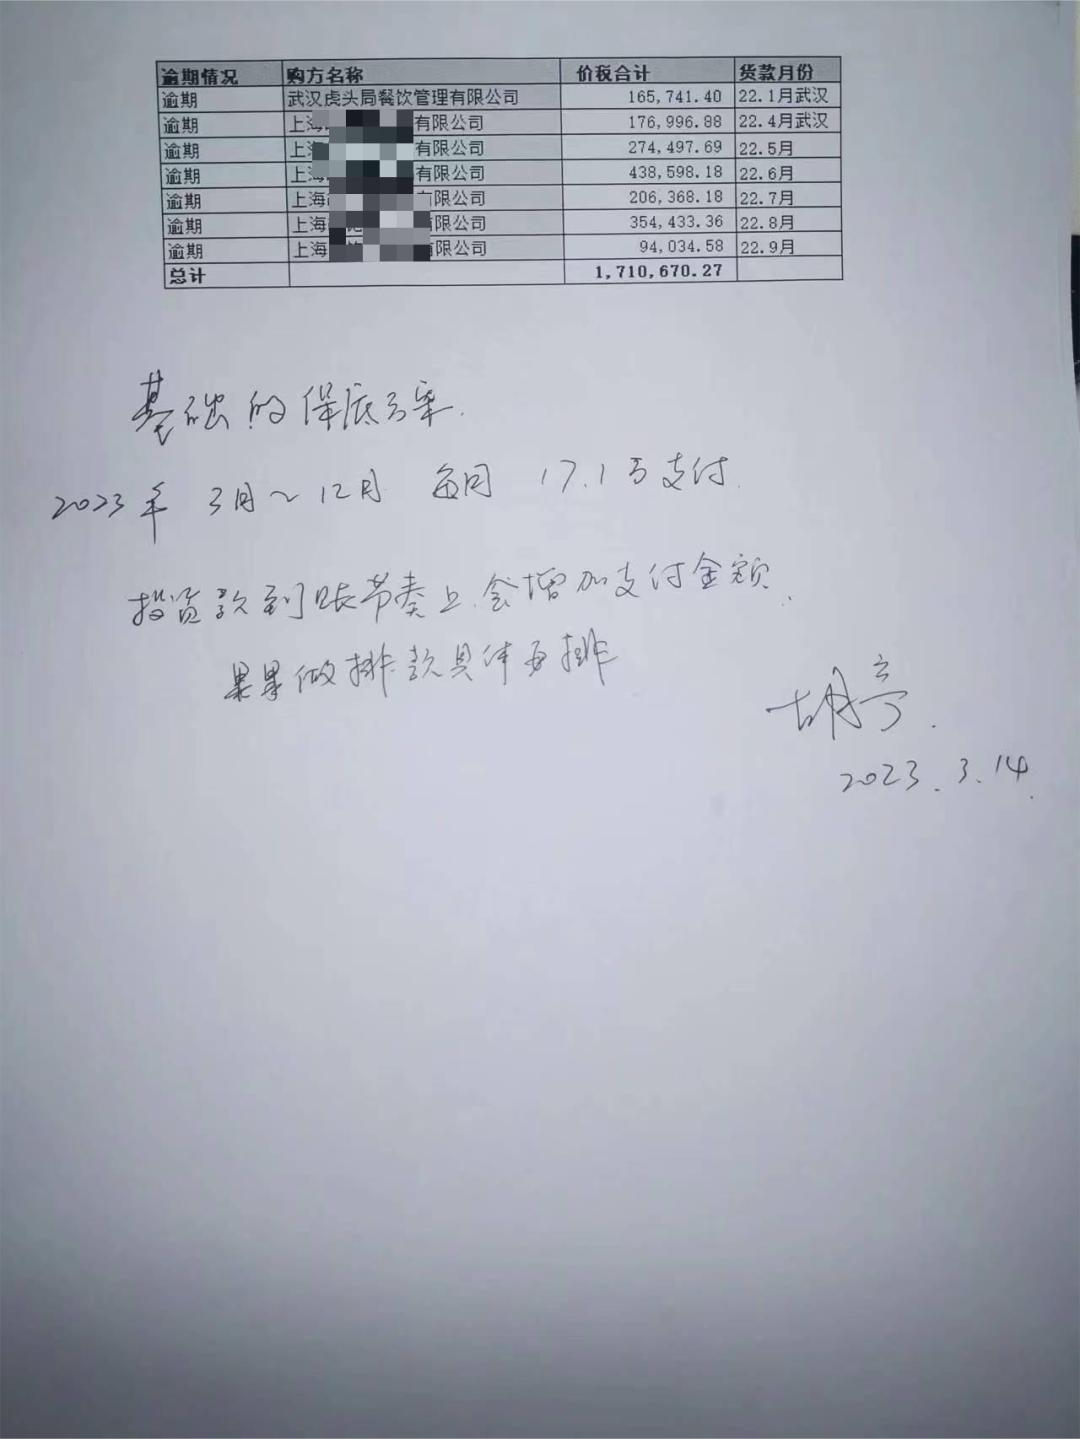 逾期情况 购方名称 价税合计 货款月份
逾期 武汉虎头局餐饮管理有限公司 165,741.40 22.1月武汉
逾期 上海 有限公司 176,996.88 22.4月武汉
逾期 上海 有限公司 274,497.69 22.5月
逾期 上海 有限公司 438,598.18 22.6月
逾期 上海 有限公司 206,368.18 22.7月
逾期 上海 有限公司 354,433.36 22.8月
逾期 上海 有限公司 94,034.58 22.9月
总计 1,710,670.27
基础的保底方案.
2023年 3月~12月 每月 17.1万支付.
投资款到账节奏上.会增加支付金额.
果果做排款具体再排
胡亭.
2023.3.14.